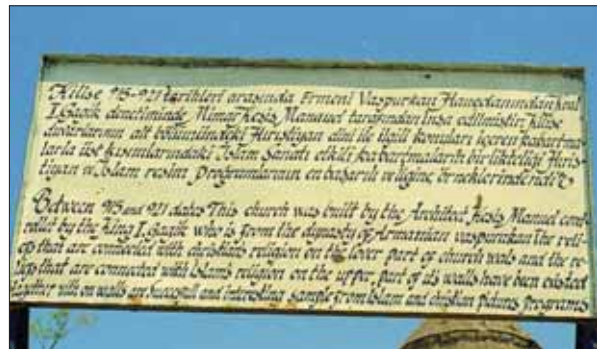 Kilise 915-921 tarihleri arasında Ermeni Vaspurkan Hanedanından Kral
I. Gagik denetiminde Mimar Keşiş Manuel tarafından İnşa edilmiştir. Kilise
duvarlarının alt bölümündeki Hıristiyan dini ile ilgili konuları içeren kabartma-
larla üst kısımlarındaki İslam Sanatı etkili kabartmaların birlikteliği Hıris-
tiyan ve İslam resim programlarının en başarılı ve ilginç örneklerindendir.
Between 915 and 921 dates This church was built by the Architect Keşiş Manuel cont-
rolled by the King I. Gagik who is from the dynasty of Armanian vaspurkan The reli-
efs that are connected with christians religion on the lover part of church wals and the re-
liefs that are connected with Islams religion on the upper part of its walls have been existed
together with on walls are succesfull and interesting sample from Islam and christian pictures programs